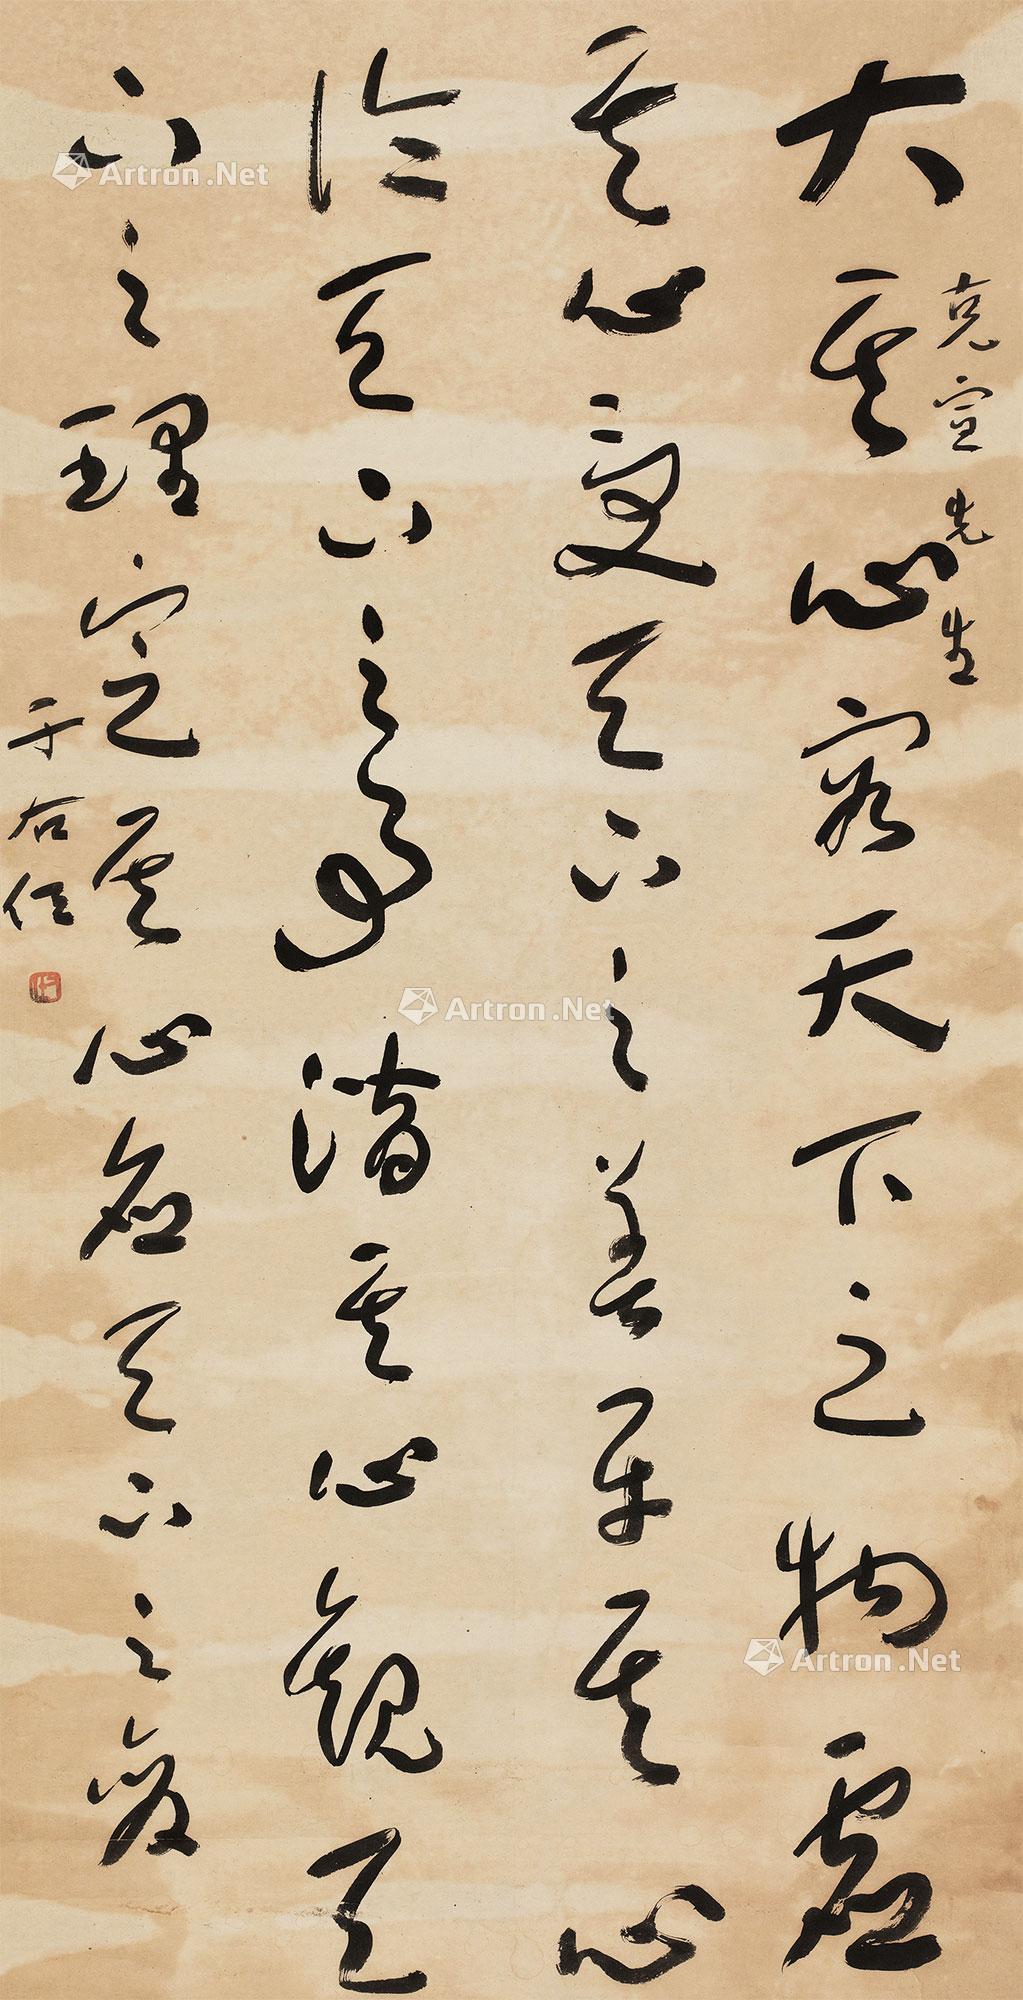 大其心容天下之物虚
其心受天下之善平其心
论天下之事潜其心观天
下之理定其心应天下之变
克宣先生
于右任
Artron.Net
Artron.Net
Artron.Net